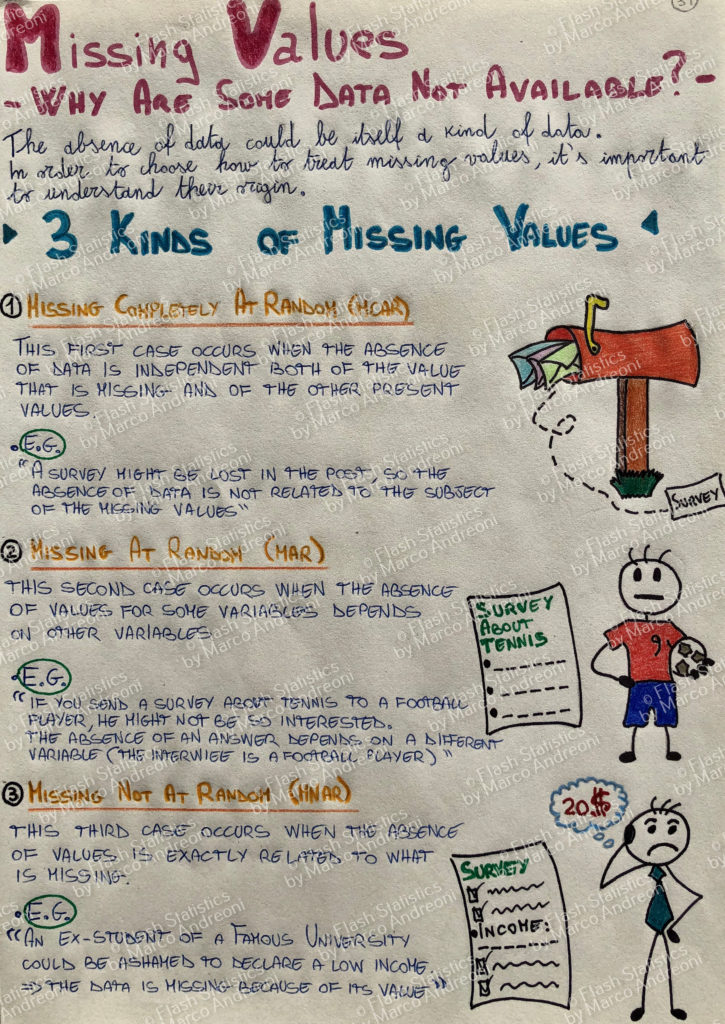 37
Missing Values
- Why Are Some Data Not Available? -
The absence of data could be itself a kind of data.
In order to choose how to treat missing values, it's important
to understand their origin.
3 Kinds of Missing Values
① Missing Completely At Random (MCAR)
THIS FIRST CASE OCCURS WHEN THE ABSENCE
OF DATA IS INDEPENDENT BOTH OF THE VALUE
THAT IS MISSING AND OF THE OTHER PRESENT
VALUES.
• E.G.
"A SURVEY MIGHT BE LOST IN THE POST, SO THE
ABSENCE OF DATA IS NOT RELATED TO THE SUBJECT
OF THE MISSING VALUES"
SURVEY
② Missing At Random (MAR)
THIS SECOND CASE OCCURS WHEN THE ABSENCE
OF VALUES FOR SOME VARIABLES DEPENDS
ON OTHER VARIABLES
• E.G.
"IF YOU SEND A SURVEY ABOUT TENNIS TO A FOOTBALL
PLAYER, HE MIGHT NOT BE SO INTERESTED.
THE ABSENCE OF AN ANSWER DEPENDS ON A DIFFERENT
VARIABLE (THE INTERWIEE IS A FOOTBALL PLAYER)"
SURVEY
ABOUT
TENNIS
9
③ Missing Not At Random (MNAR)
THIS THIRD CASE OCCURS WHEN THE ABSENCE
OF VALUES IS EXACTLY RELATED TO WHAT
IS MISSING.
• E.G.
"AN EX-STUDENT OF A FAMOUS UNIVERSITY
COULD BE ASHAMED TO DECLARE A LOW INCOME.
=> THE DATA IS MISSING BECAUSE OF ITS VALUE"
20$
SURVEY
• INCOME:
© Flash Statistics
by Marco Andreoni